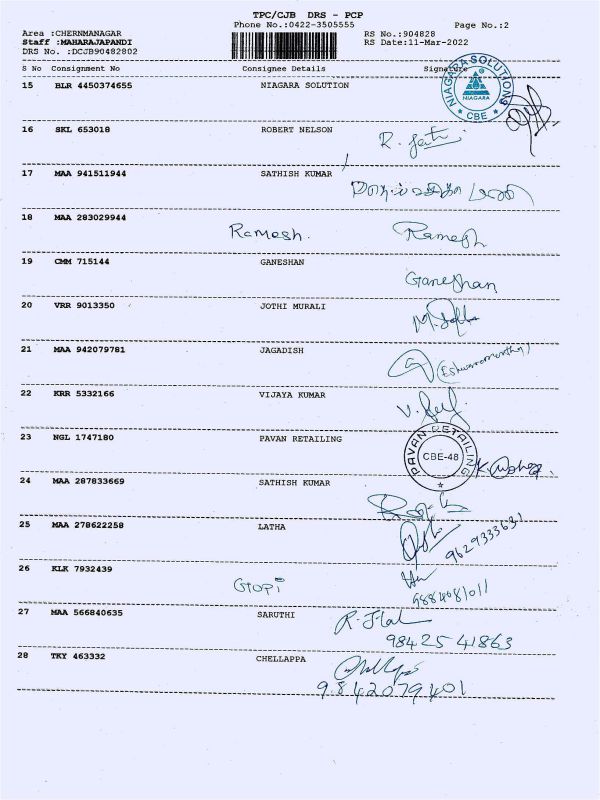 TPC/CJB DRS - PCP
Phone No.:0422-3505555 Page No.:2
Area :CHERNMANAGAR RS No.:904828
Staff :MAHARAJAPANDI RS Date:11-Mar-2022
DRS No. :DCJB90482802
S No Consignment No Consignee Details Signature
15 BLR 4450374655 NIAGARA SOLUTION
NIAGARA SOLUTIONS
NIAGARA
★ CBE ★
16 SKL 653018 ROBERT NELSON
17 MAA 941511944 SATHISH KUMAR
18 MAA 283029944
Ramesh. Ramesh
19 CMM 715144 GANESHAN
Ganeshan
20 VRR 9013350 JOTHI MURALI
21 MAA 942079781 JAGADISH
(Eshwaramurthy)
22 KRR 5332166 VIJAYA KUMAR
23 NGL 1747180 PAVAN RETAILING
PAVAN RETAILING
CBE-48
★
24 MAA 287833669 SATHISH KUMAR
25 MAA 278622258 LATHA
9629333631
26 KLK 7932439
Gopi
9884081011
27 MAA 566840635 SARUTHI
98425 41863
28 TKY 463332 CHELLAPPA
9.842079401